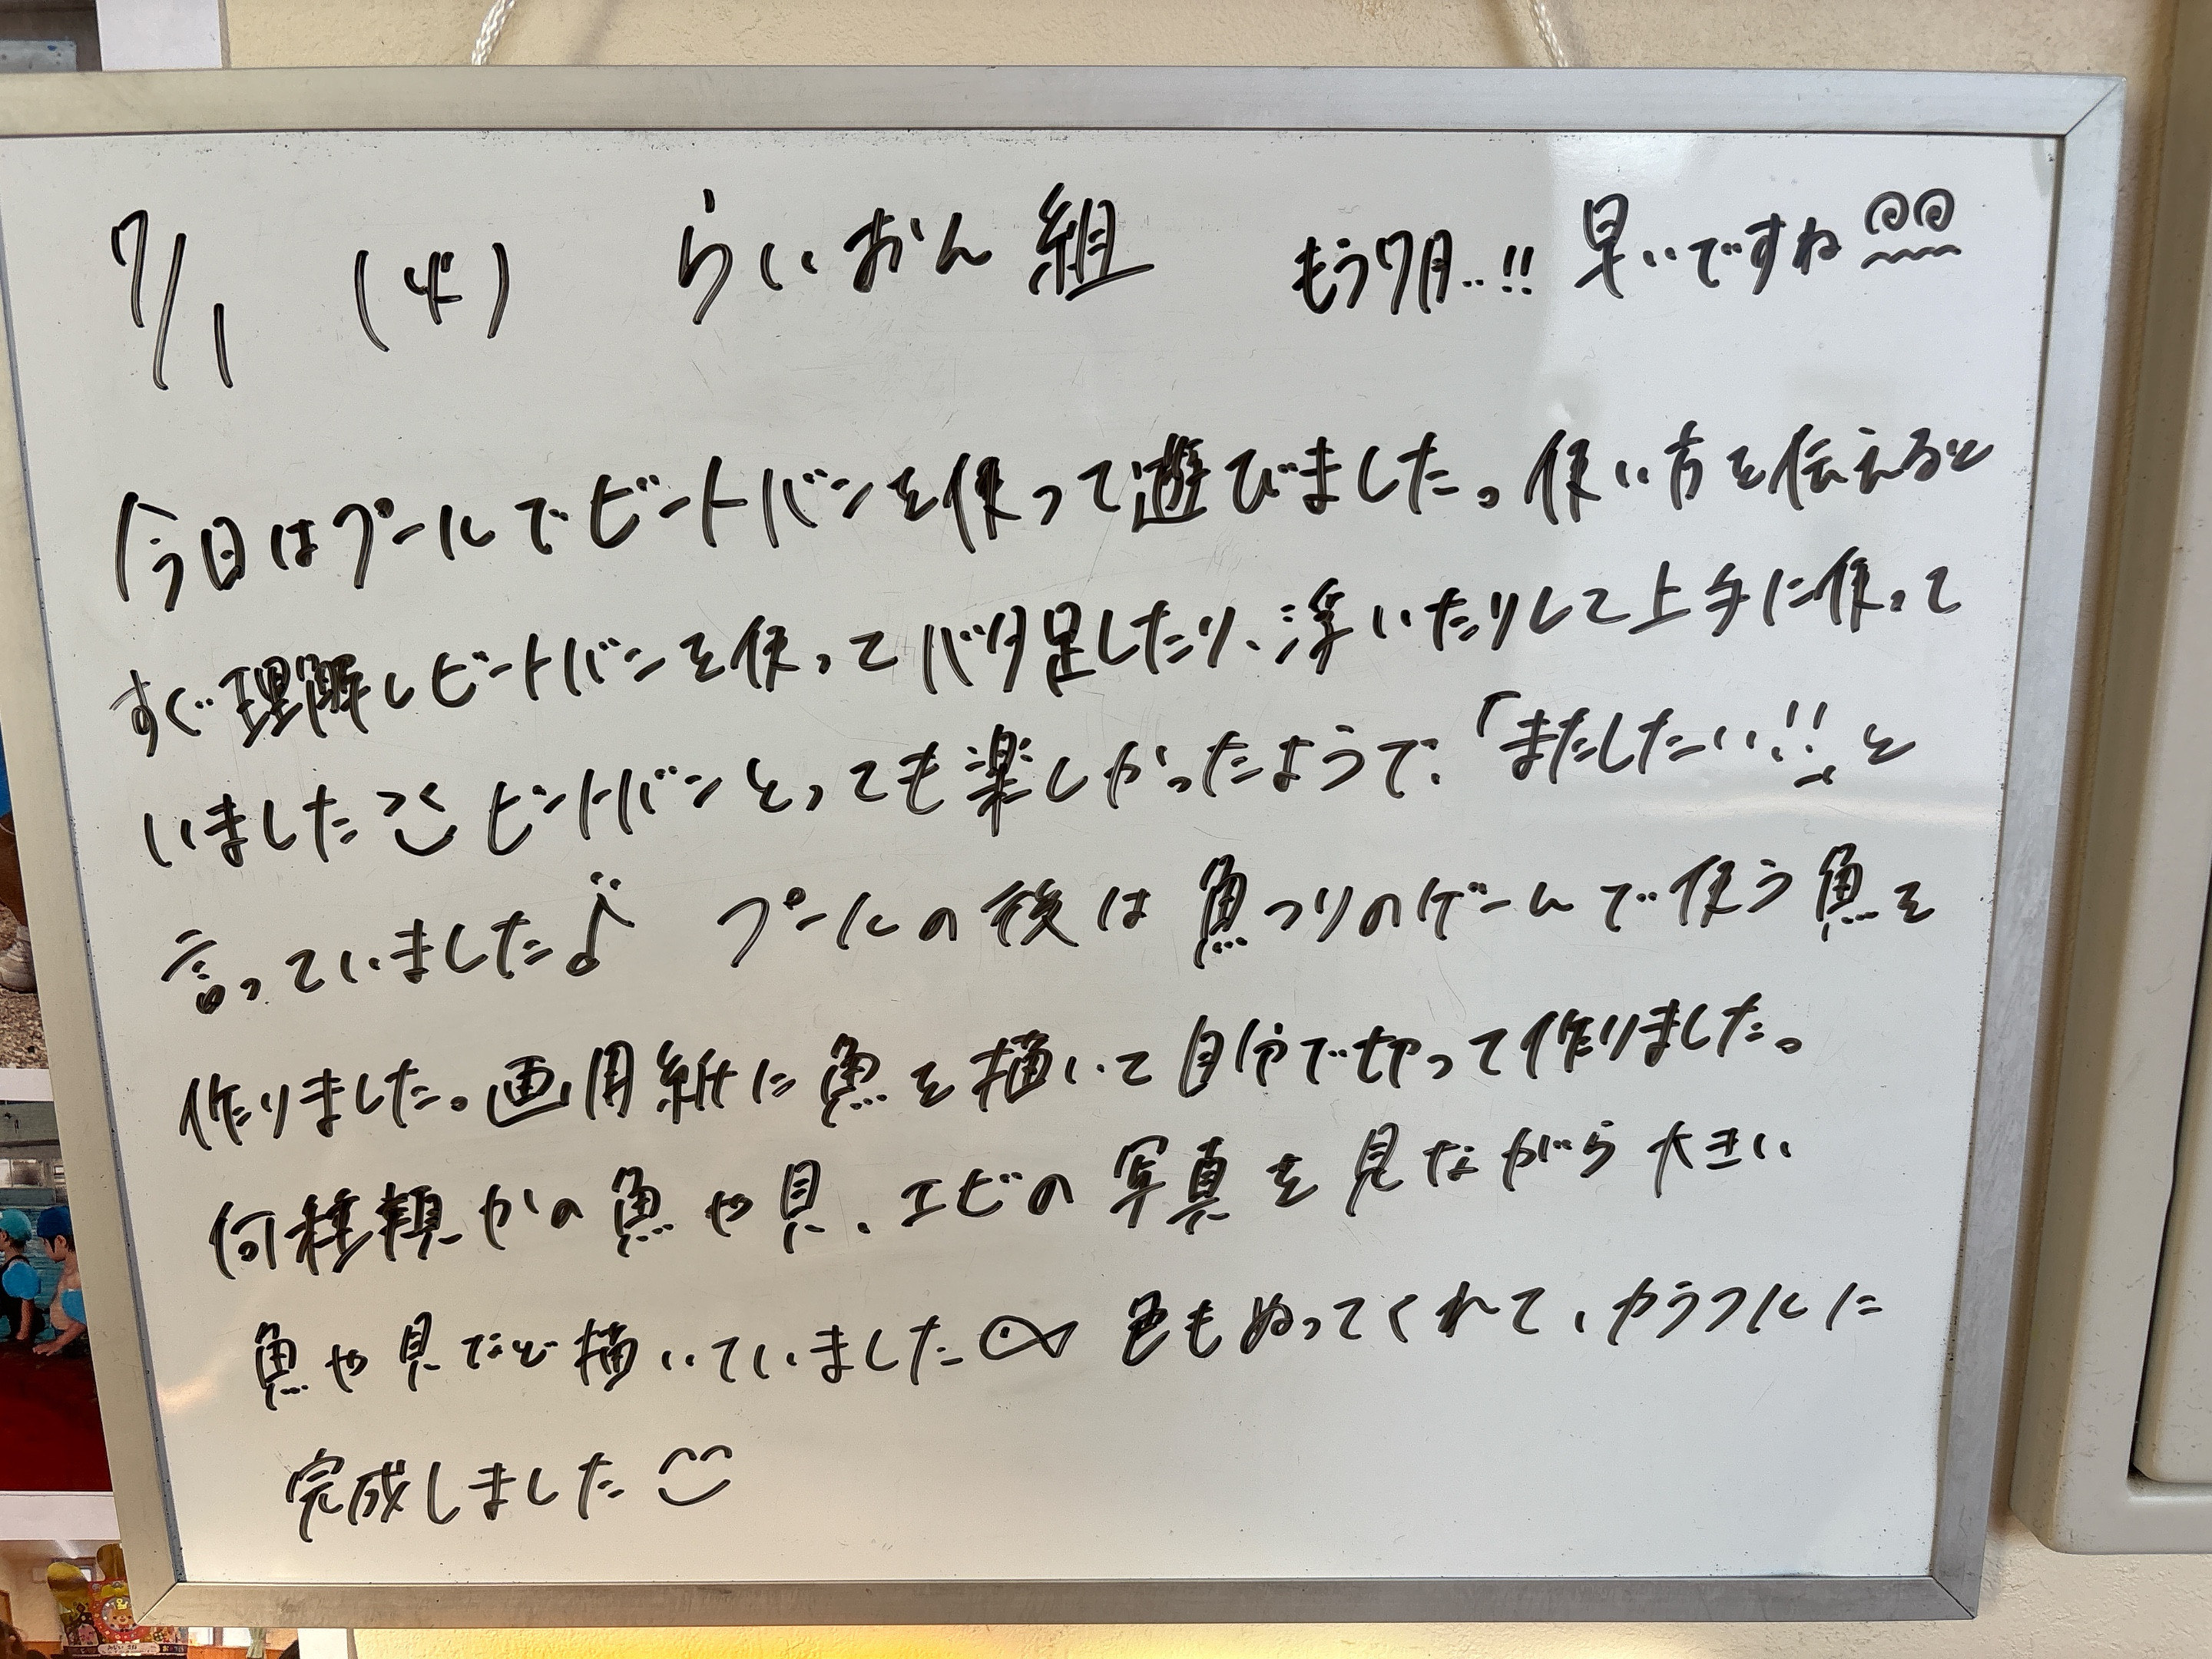 7/1 (火) らいおん組 もう7月..!! 早いですね
今日はプールでビートバンを使って遊びました。使い方を伝えると
すぐ理解しビートバンを使ってバタ足したり、浮いたりして上手に使って
いました ビートバンとっても楽しかったようで、「またしたーい!!」と
言っていました♪ プールの後は魚つりのゲームで使う魚を
作りました。画用紙に魚を描いて自分で切って作りました。
何種類かの魚や貝、エビの写真を見ながら大きい
魚や貝など描いていました 色もぬってくれて、カラフルに
完成しました